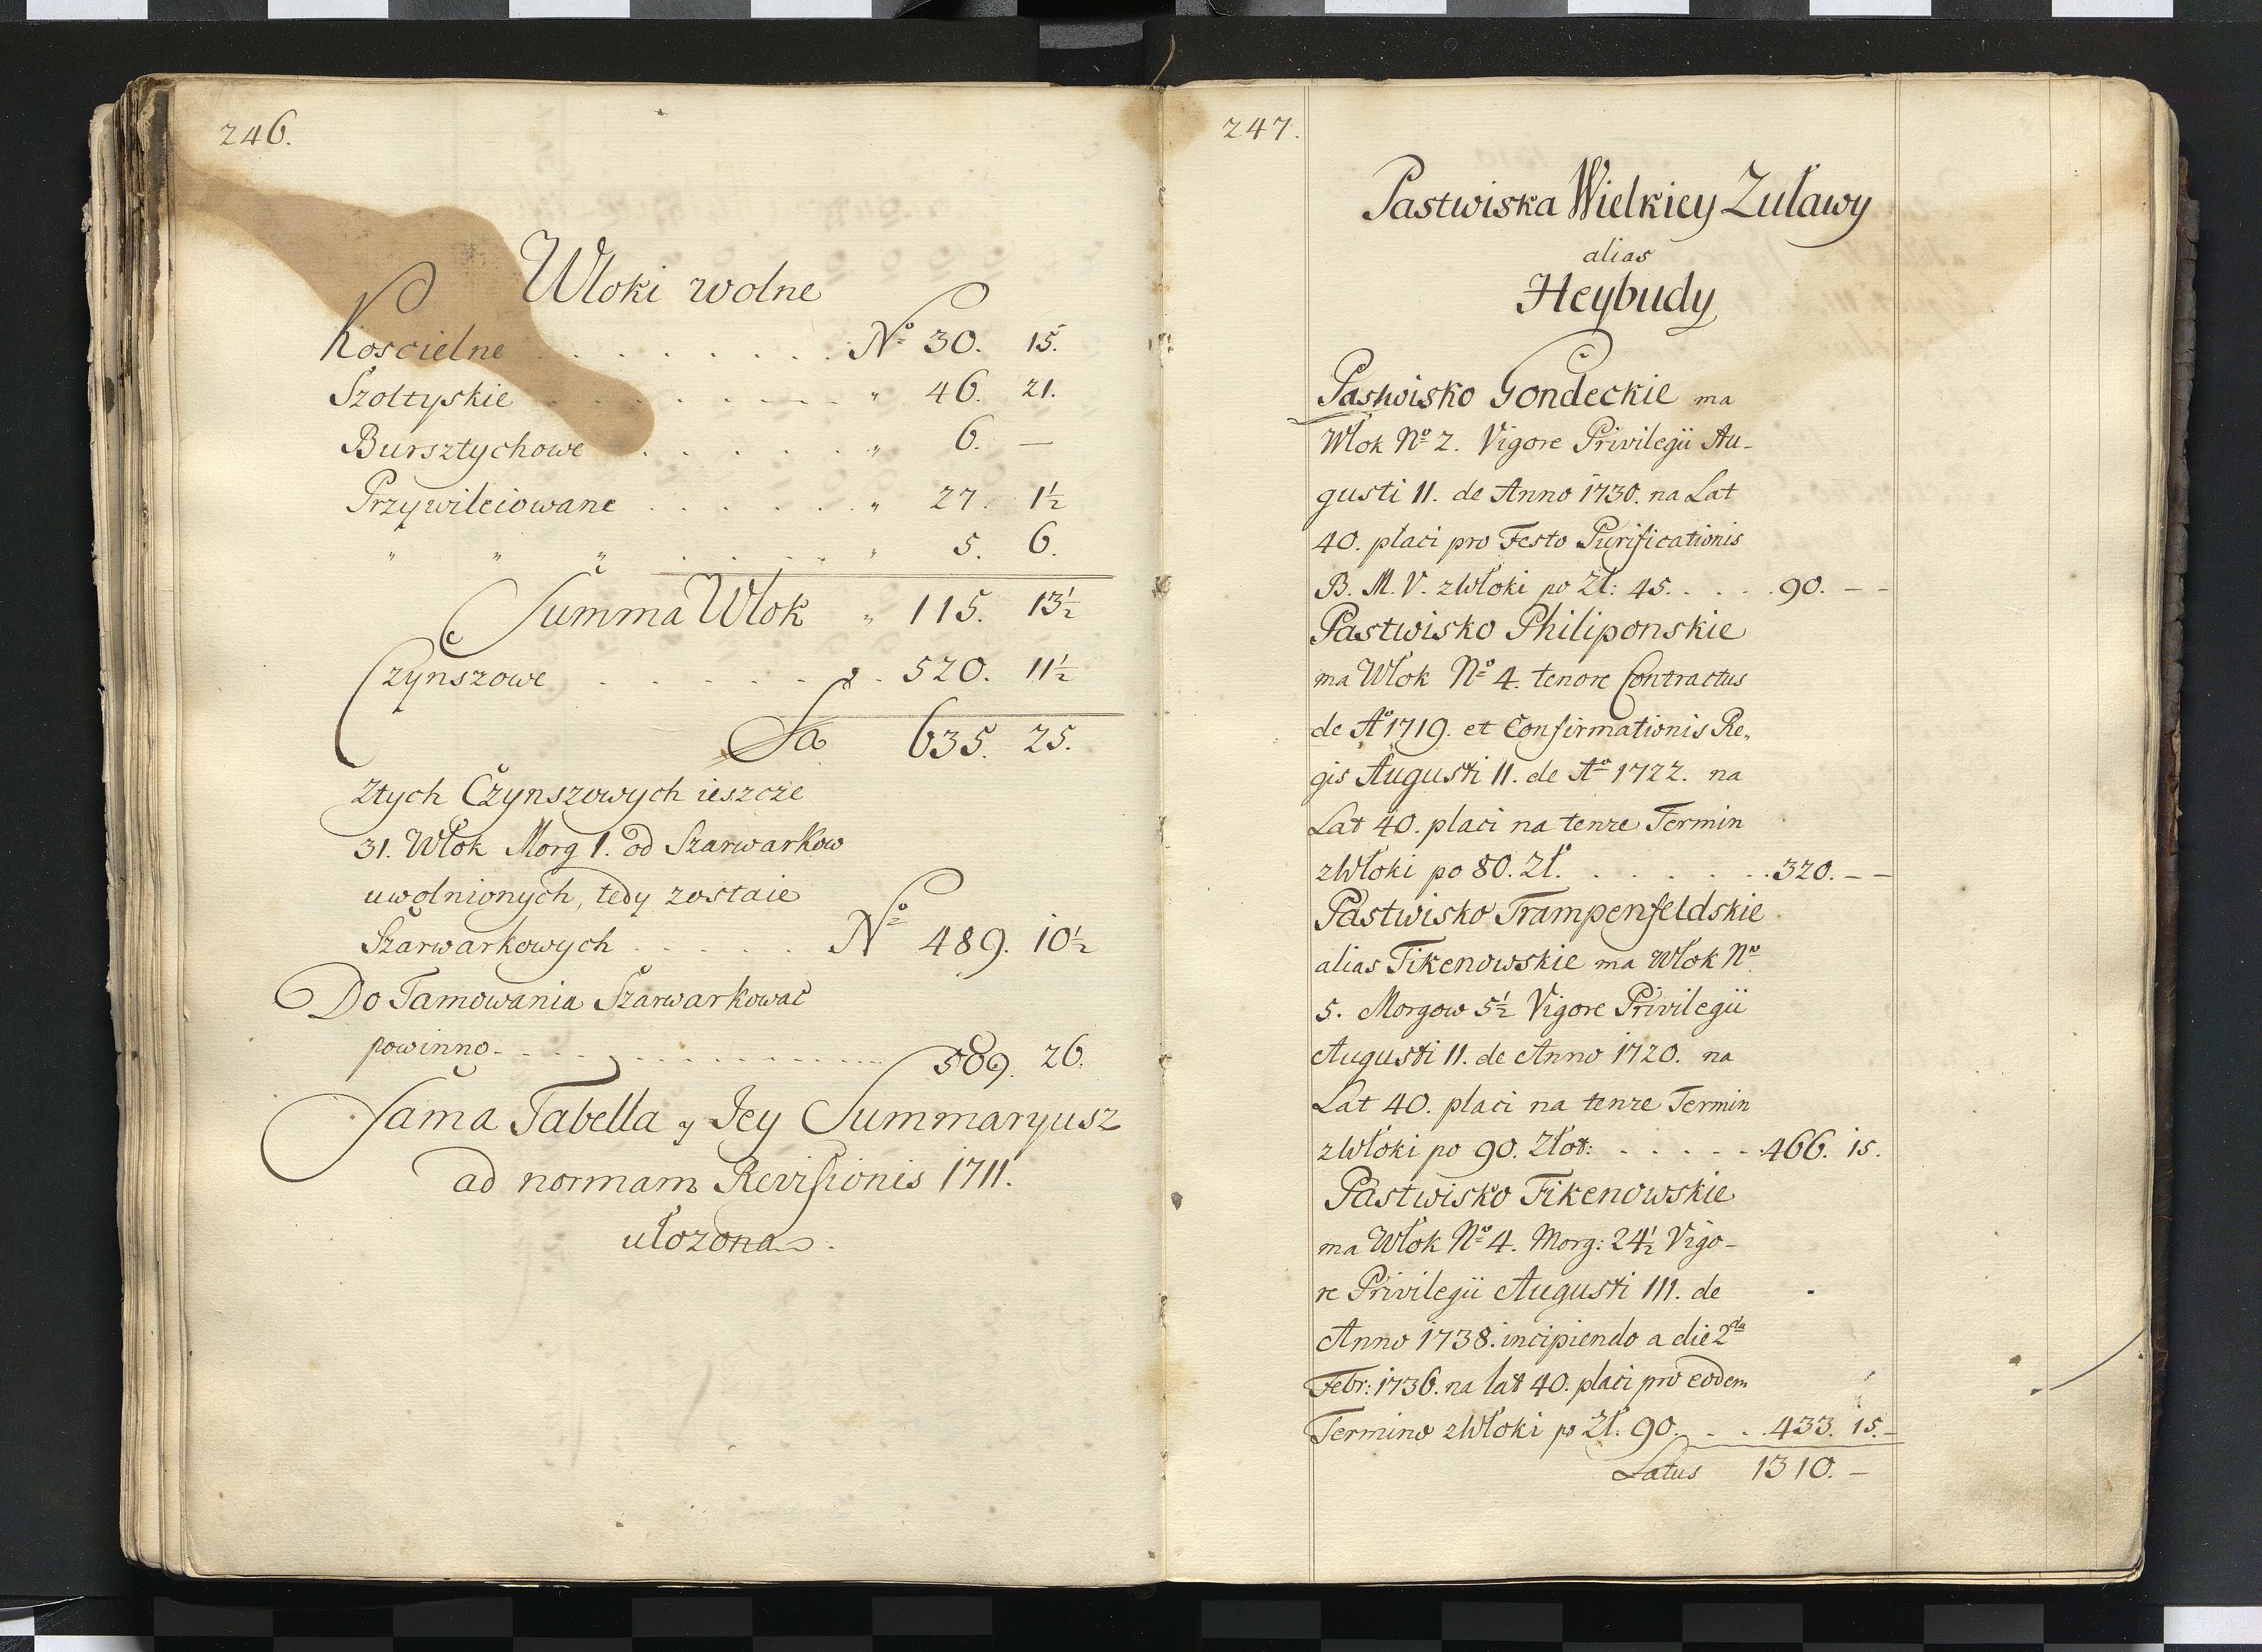 246.
Włoki wolne
Koscielne . . . . . . . . . No 30. 15.
Szołtyskie . . . . . . . . . " 46. 21.
Bursztychowe . . . . . " 6. —
Przywileiowane . . . . . . " 27. 1½
" " " . . . . " 5. 6.
Summa Włok " 115. 13½
Czynszowe . . . . . . 520. 11½
Sa 635. 25.
Ztych Czynszowych ieszcze
31. Włok Morg 1. od Szarwarkow
uwolnionych, tedy zostaie
Szarwarkowych . . . . . No 489. 10½
Do Tamowania Szarwarkować
powinno . . . . . . . . . . 589. 26.
Sama Tabella y Jey Summaryusz
ad normam Revisionis 1711.
ułozona.
247.
Pastwiska Wielkiey Zuławy
alias
Heybudy
Pastwisko Gondeckie ma
Włok No 2. Vigore Privilegii Au-
gusti II. de Anno 1730. na Lat
40. płaci pro Festo Purificationis
B. M. V. z Włoki po Zł: 45. . . . . 90. – –
Pastwisko Philiponskie
ma Włok No 4. tenore Contractus
de Ao 1719. et Confirmationis Re-
gis Augusti II. de Ao 1722. na
Lat 40. płaci na tenze Termin
z Włoki po 80. Zł. . . . . . . 320. – –
Pastwisko Trampenfeldskie
alias Fikenowskie ma Włok No
5. Morgow 5½ Vigore Privilegii
Augusti II. de Anno 1720. na
Lat 40. płaci na tenze Termin
z Włoki po 90. Złot: . . . . . 466. 15.
Pastwisko Fikenowskie
ma Włok No 4. Morg: 24½ Vigo-
re Privilegii Augusti III. de
Anno 1738. incipiendo a die 2da
Febr: 1736. na lat 40. płaci pro eodem
Termino z Włoki po Zł. 90. . . . 433. 15. –
Latus 1310. –